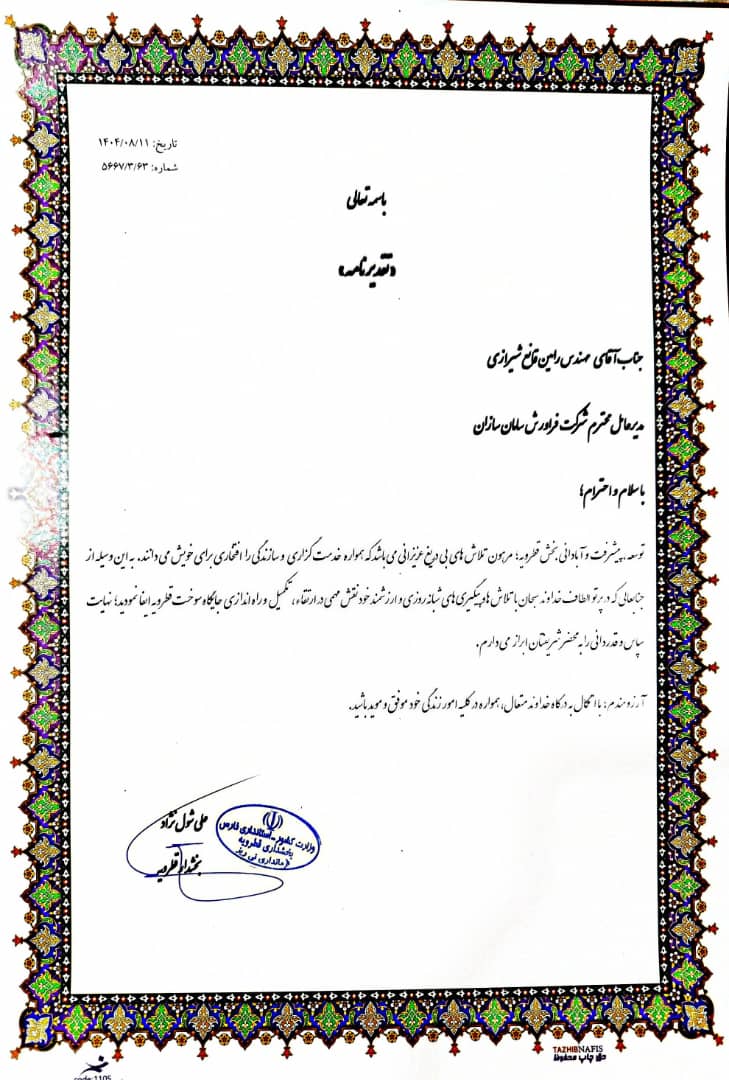 تاریخ: ۱۴۰۴/۰۸/۱۱
شماره: ۵۶۶۷/۳/۶۳
باسمه تعالی
«تقدیرنامه»
جناب آقای مهندس رامین قانع شیرازی
مدیرعامل محترم شرکت فرآورش سامان سازان
با سلام و احترام؛
توسعه، پیشرفت و آبادانی بخش قطرویه؛ مرهون تلاش های بی دریغ عزیزانی می باشد که همواره خدمت گزاری و سازندگی را افتخاری برای خویش می دانند. به این وسیله از
جنابعالی که در پرتو الطاف خداوند سبحان با تلاش ها و پیگیری های شبانه روزی و ارزشمند خود نقش مهمی در ارتقاء، تکمیل و راه اندازی جایگاه سوخت قطرویه ایفا نمودید؛ نهایت
سپاس و قدردانی را به محضر شریفتان ابراز می دارم.
آرزومندم؛ با اتکال به درگاه خداوند متعال، همواره در کلیه امور زندگی خود موفق و موید باشید.
علی شول نژاد
بخشدار قطرویه
وزارت کشور - استانداری فارس
بخشداری قطرویه
فرمانداری نی ریز
TAZHIBNAFIS
حق چاپ محفوظ
code:1105